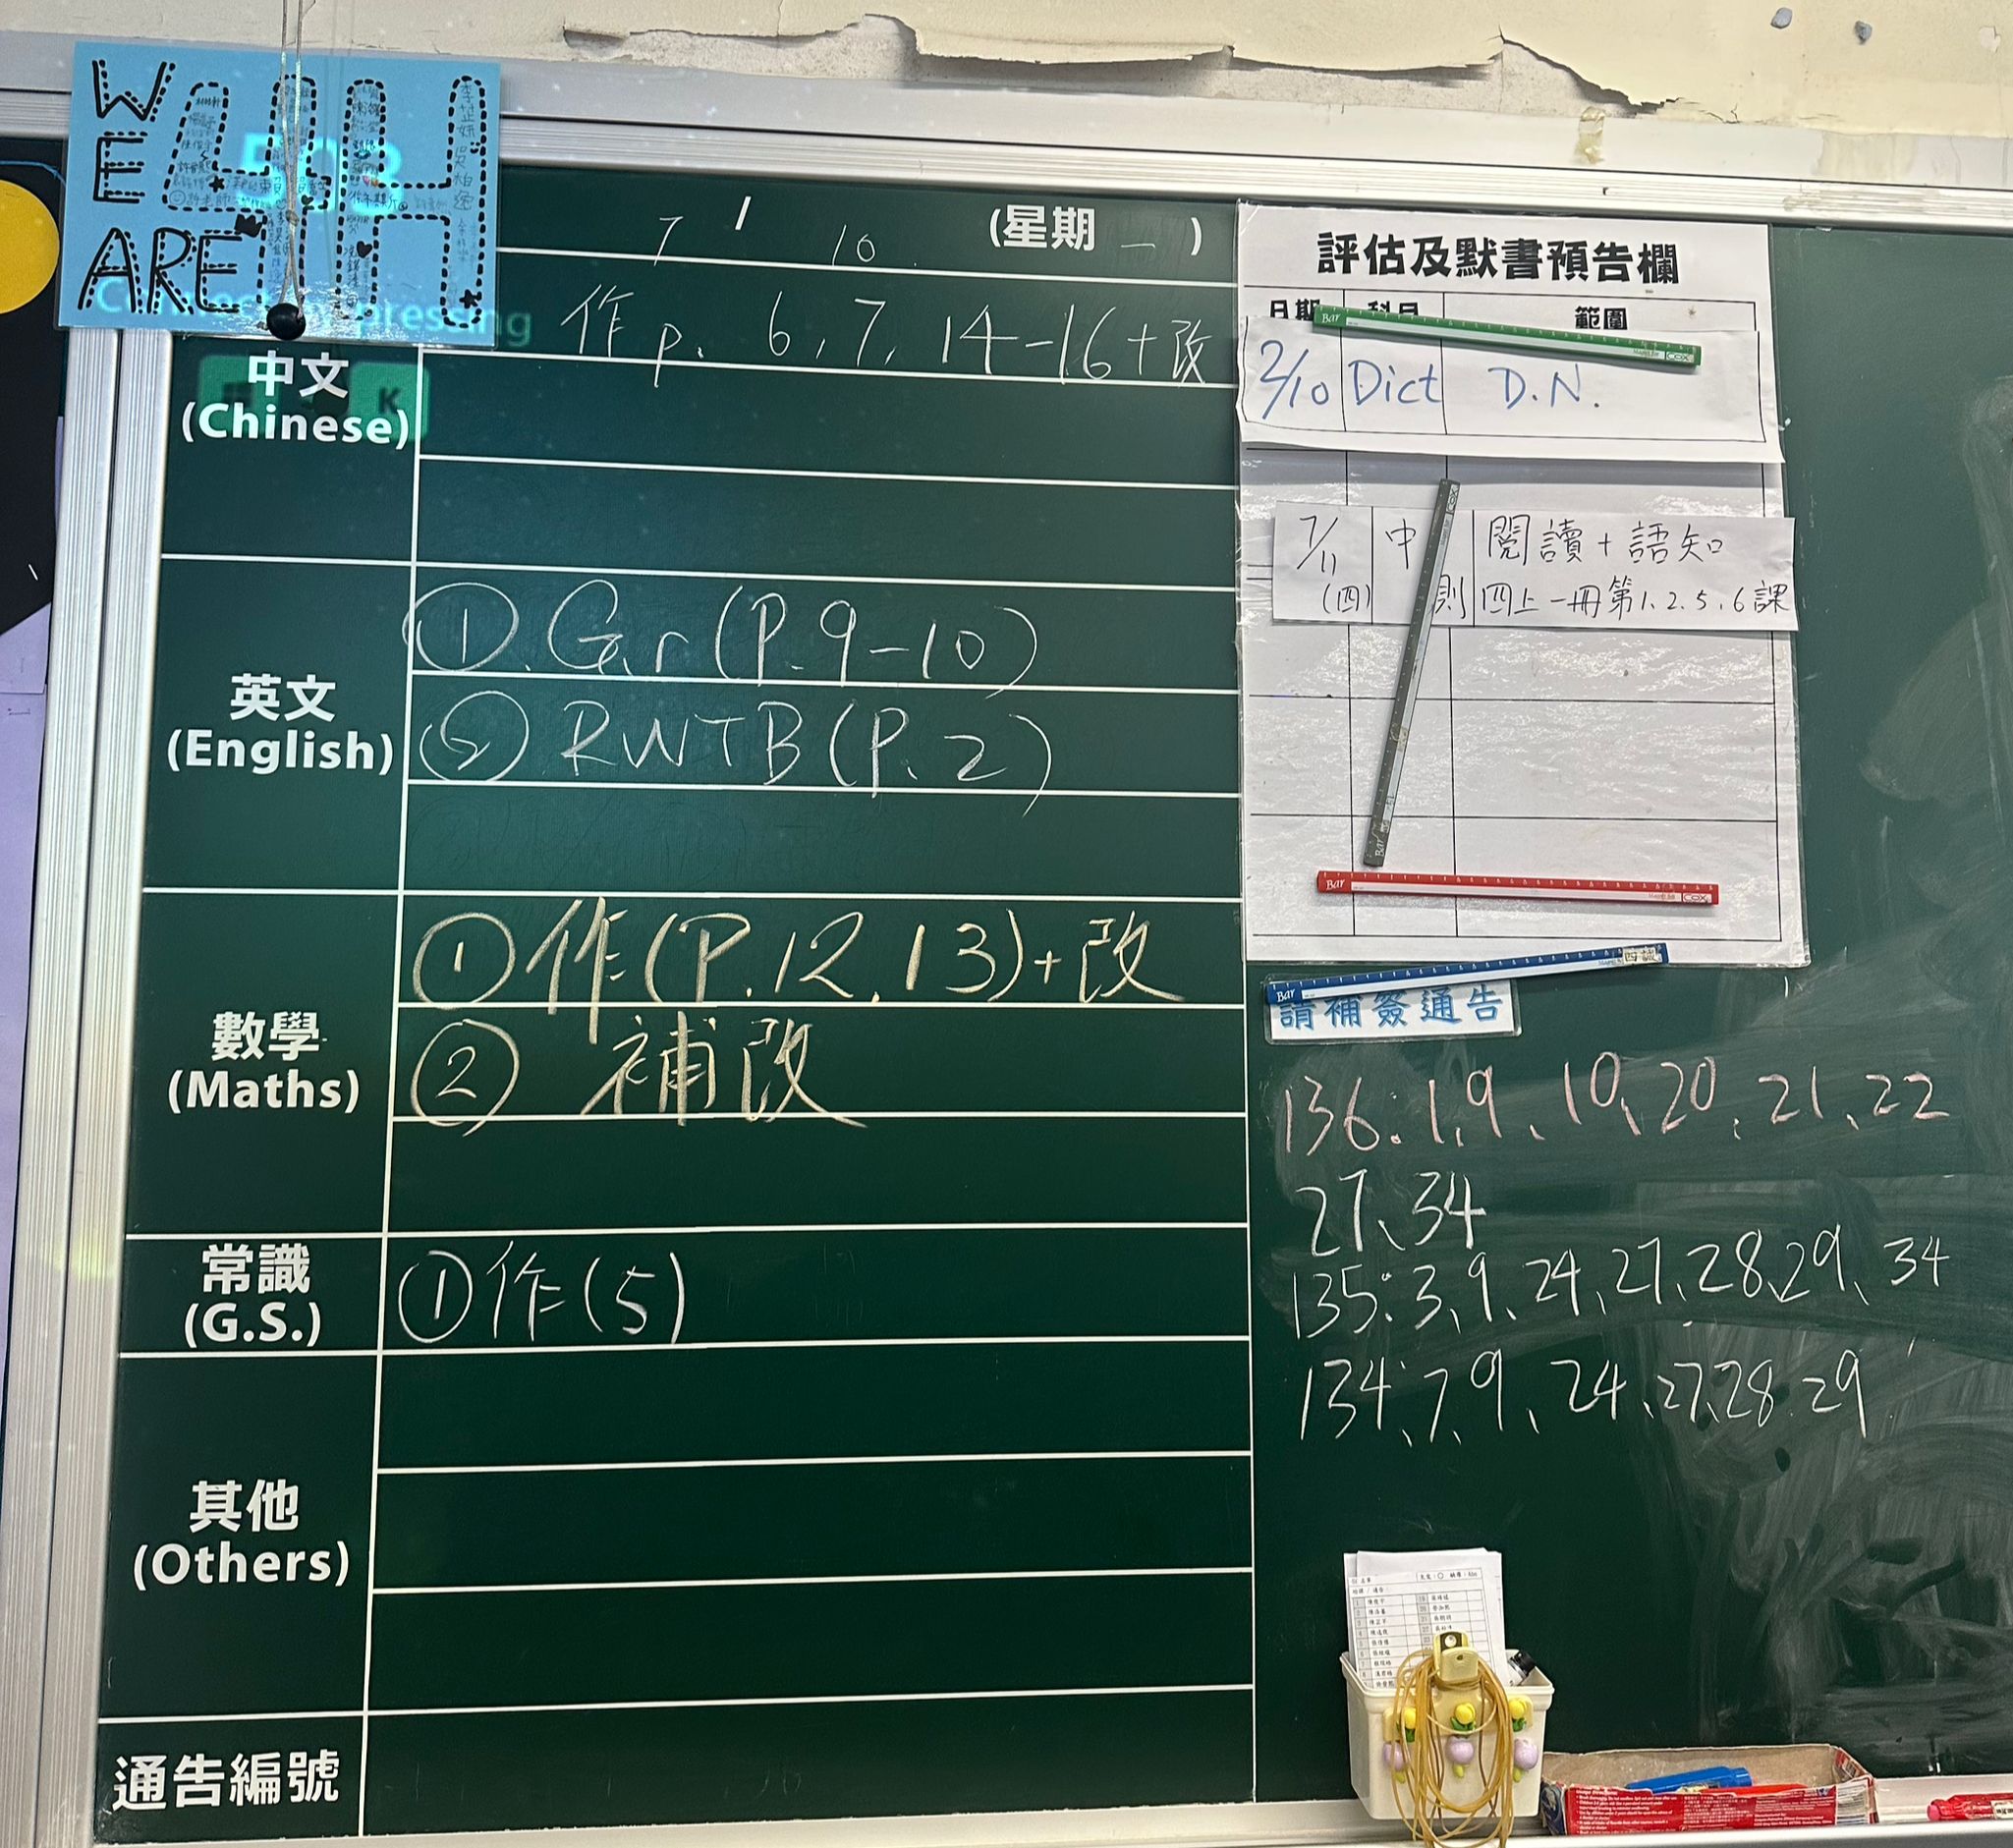 WE
ARE
4H
7 / 10 (星期 一 )
作 p. 6, 7, 14-16 + 改
中文
(Chinese)
英文
(English)
① Gr (P. 9-10)
② RWTB (P. 2)
數學
(Maths)
① 作 (P. 12, 13) + 改
② 補改
常識
(G.S.)
① 作 (5)
其他
(Others)
通告編號
評估及默書預告欄
日期 科目 範圍
2/10 Dict D.N.
7/11 中 閱讀 + 語知
(四) 四上一冊第1、2、5、6課
請補簽通告
136: 1, 9、10、20、21、22
27、34
135: 3、9、24、27、28、29、34
134: 7、9、24、27、28、29
Bar
COX